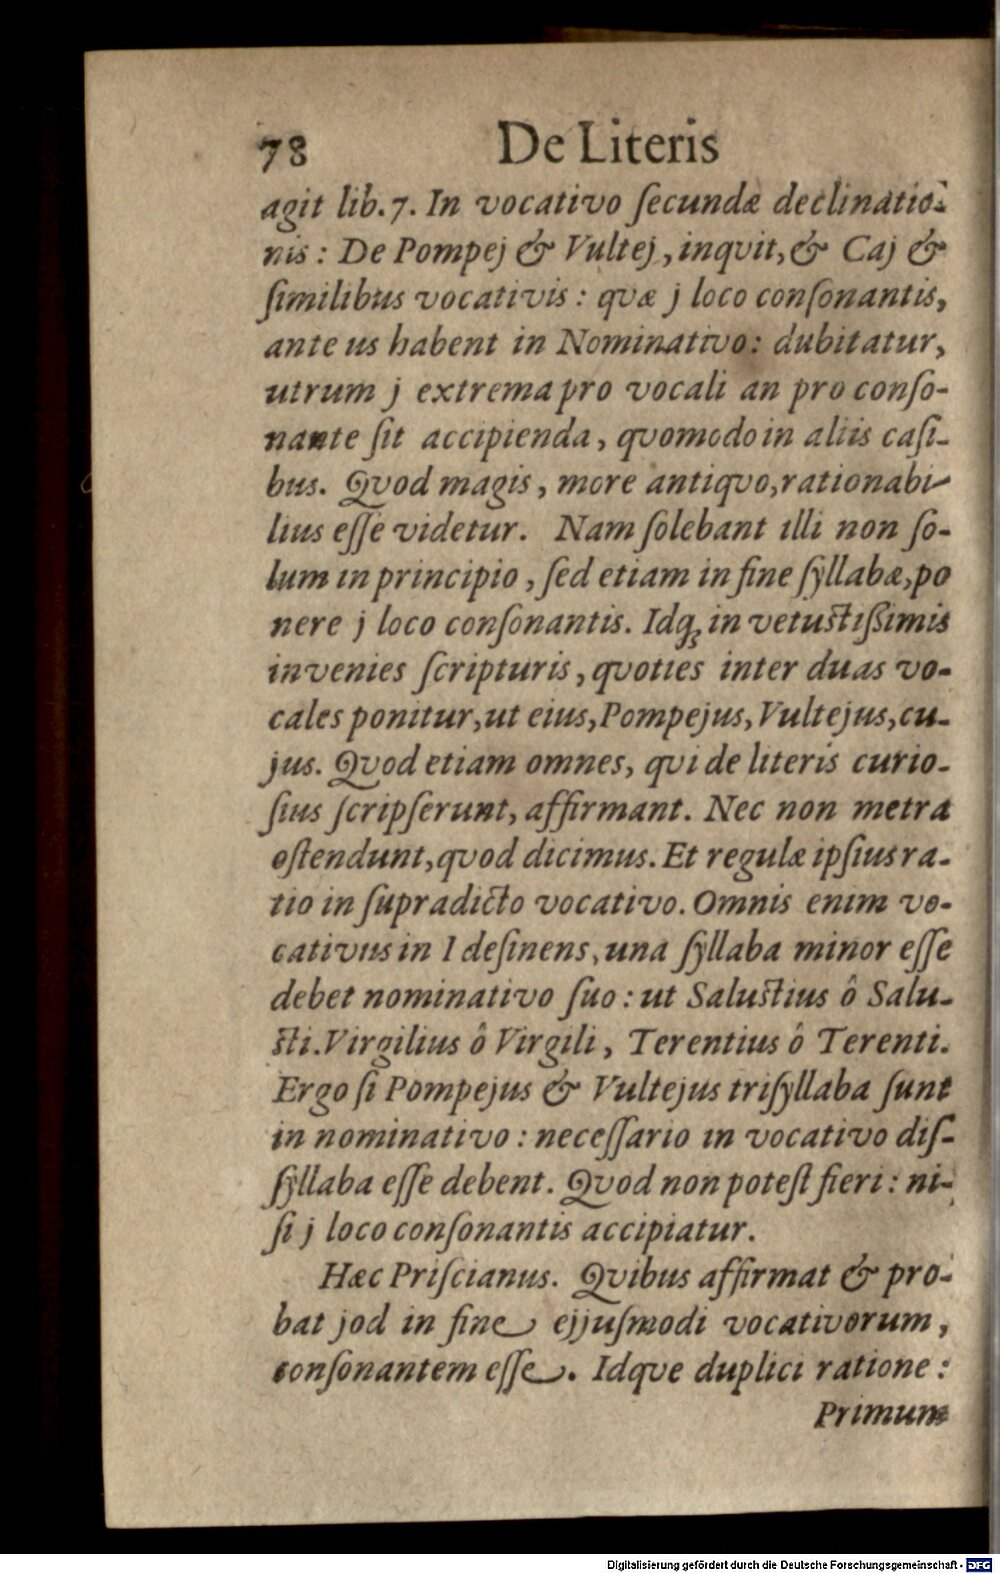 78 De Literis
agit lib. 7. In vocativo ſecundæ declinatio-
nis : De Pompej & Vultej, inqvit, & Caj &
ſimilibus vocativis : qvæ j loco conſonantis,
ante us habent in Nominativo: dubitatur,
utrum j extrema pro vocali an pro conſo-
nante ſit accipienda, qvomodo in aliis caſi-
bus. Qvod magis, more antiqvo, rationabi-
lius eſſe videtur. Nam ſolebant illi non ſo-
lum in principio, ſed etiam in fine ſyllabæ, po
nere j loco conſonantis. Idqꝫ in vetustiſſimis
invenies ſcripturis, qvoties inter duas vo-
cales ponitur, ut eius, Pompejus, Vultejus, cu-
jus. Qvod etiam omnes, qvi de literis curio-
ſius ſcripſerunt, affirmant. Nec non metra
oſtendunt, qvod dicimus. Et regulæ ipſius ra-
tio in ſupradicto vocativo. Omnis enim vo-
cativus in I deſinens, una ſyllaba minor eſſe
debet nominativo ſuo : ut Salustius ô Salu-
sti. Virgilius ô Virgili, Terentius ô Terenti.
Ergo ſi Pompejus & Vultejus triſyllaba ſunt
in nominativo : neceſſario in vocativo diſ-
ſyllaba eſſe debent. Qvod non poteſt fieri : ni-
ſi j loco conſonantis accipiatur.
Hæc Priſcianus. Qvibus affirmat & pro-
bat jod in fine ejjuſmodi vocativorum,
conſonantem eſſe. Idqve duplici ratione :
Primum
Digitalisierung gefördert durch die Deutsche Forschungsgemeinschaft - DFG